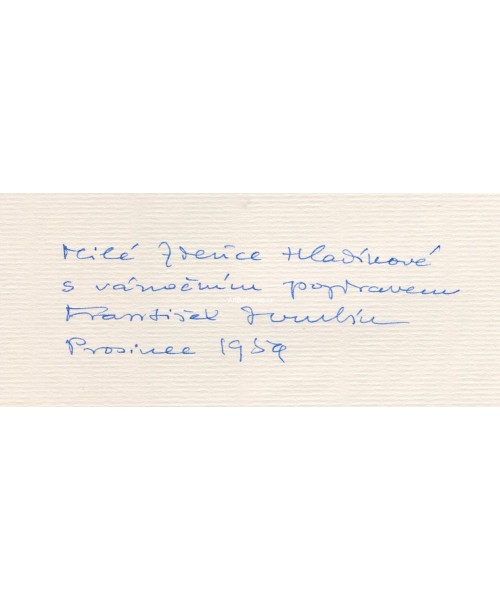 Milé Zdeňce Hladíkové
s vánočním pozdravem
František
Prosinec 1959